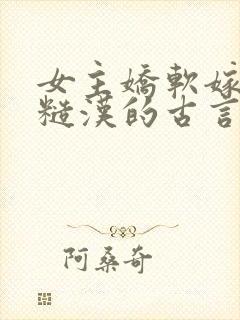 女主嬌軟嫁
糙漢的古言
阿桑奇